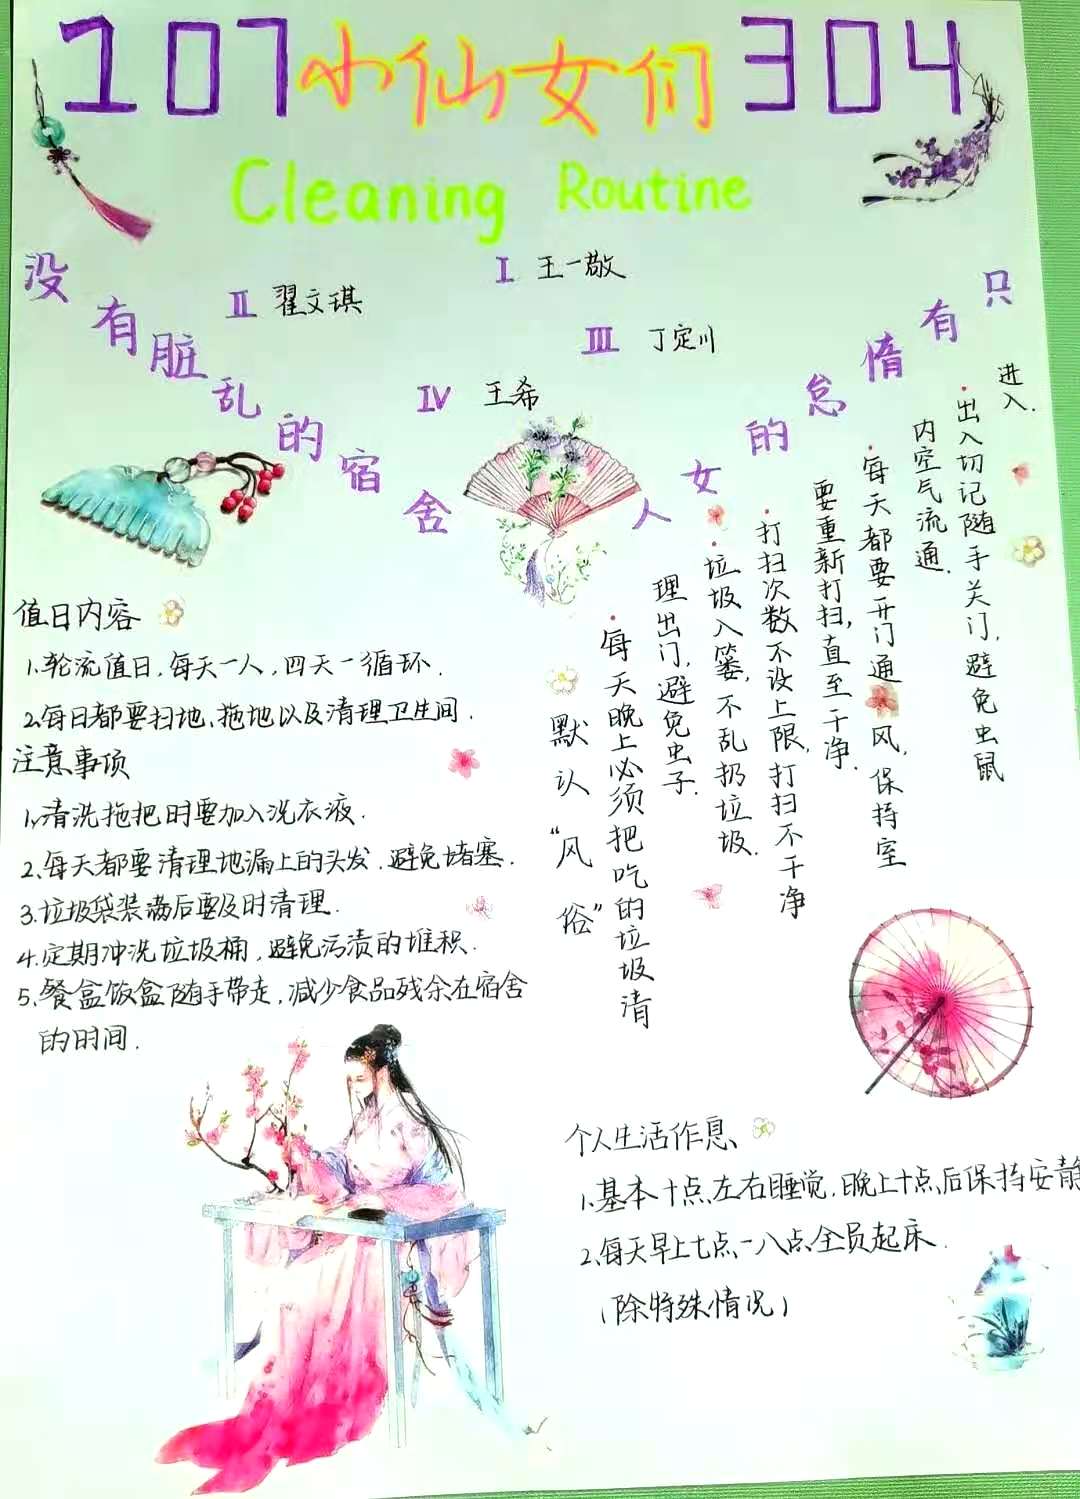 107小仙女们304
Cleaning Routine
I 王一敬
II 翟文琪
III 丁定川
IV 王希
没有脏乱的宿舍
只有惰怠的女人
值日内容
1.轮流值日,每天一人,四天一循环.
2.每日都要扫地、拖地以及清理卫生间.
注意事项
1、清洗拖把时要加入洗衣液.
2、每天都要清理地漏上的头发.避免堵塞.
3.垃圾袋装满后要及时清理.
4.定期冲洗垃圾桶,避免污渍的堆积.
5、餐盒饭盒随手带走,减少食品残余在宿舍
的时间.
默认“风俗”
·每天晚上必须把吃的垃圾清
理出门,避免虫子.
·垃圾入篓,不乱扔垃圾.
·打扫次数不设上限,打扫不干净
要重新打扫,直至干净.
·每天都要开门通风,保持室
内空气流通.
·出入切记随手关门,避免虫鼠
进入.
个人生活作息
1、基本十点左右睡觉,晚上十点后保持安静
2、每天早上七点-八点全员起床.
(除特殊情况)